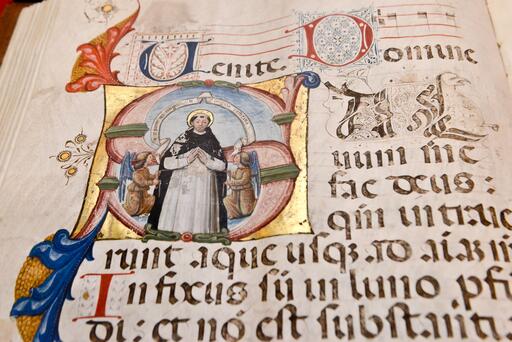 Uenite. Domine
SAL
uum me
fac deus:
qm intrau
runt aque usqz ad aiaz m
Infixus sū in limo pfū
di: et nō est substantia